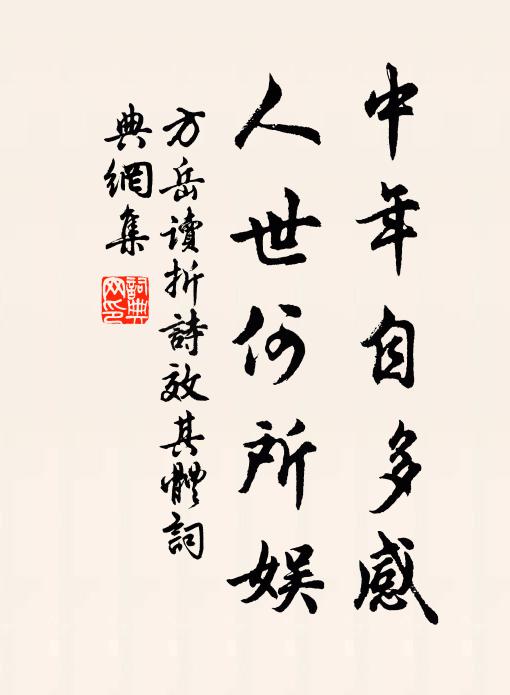 中年自多感
人世何所娱
方岳讀折詩效其體詞
典網集
詞典
网印